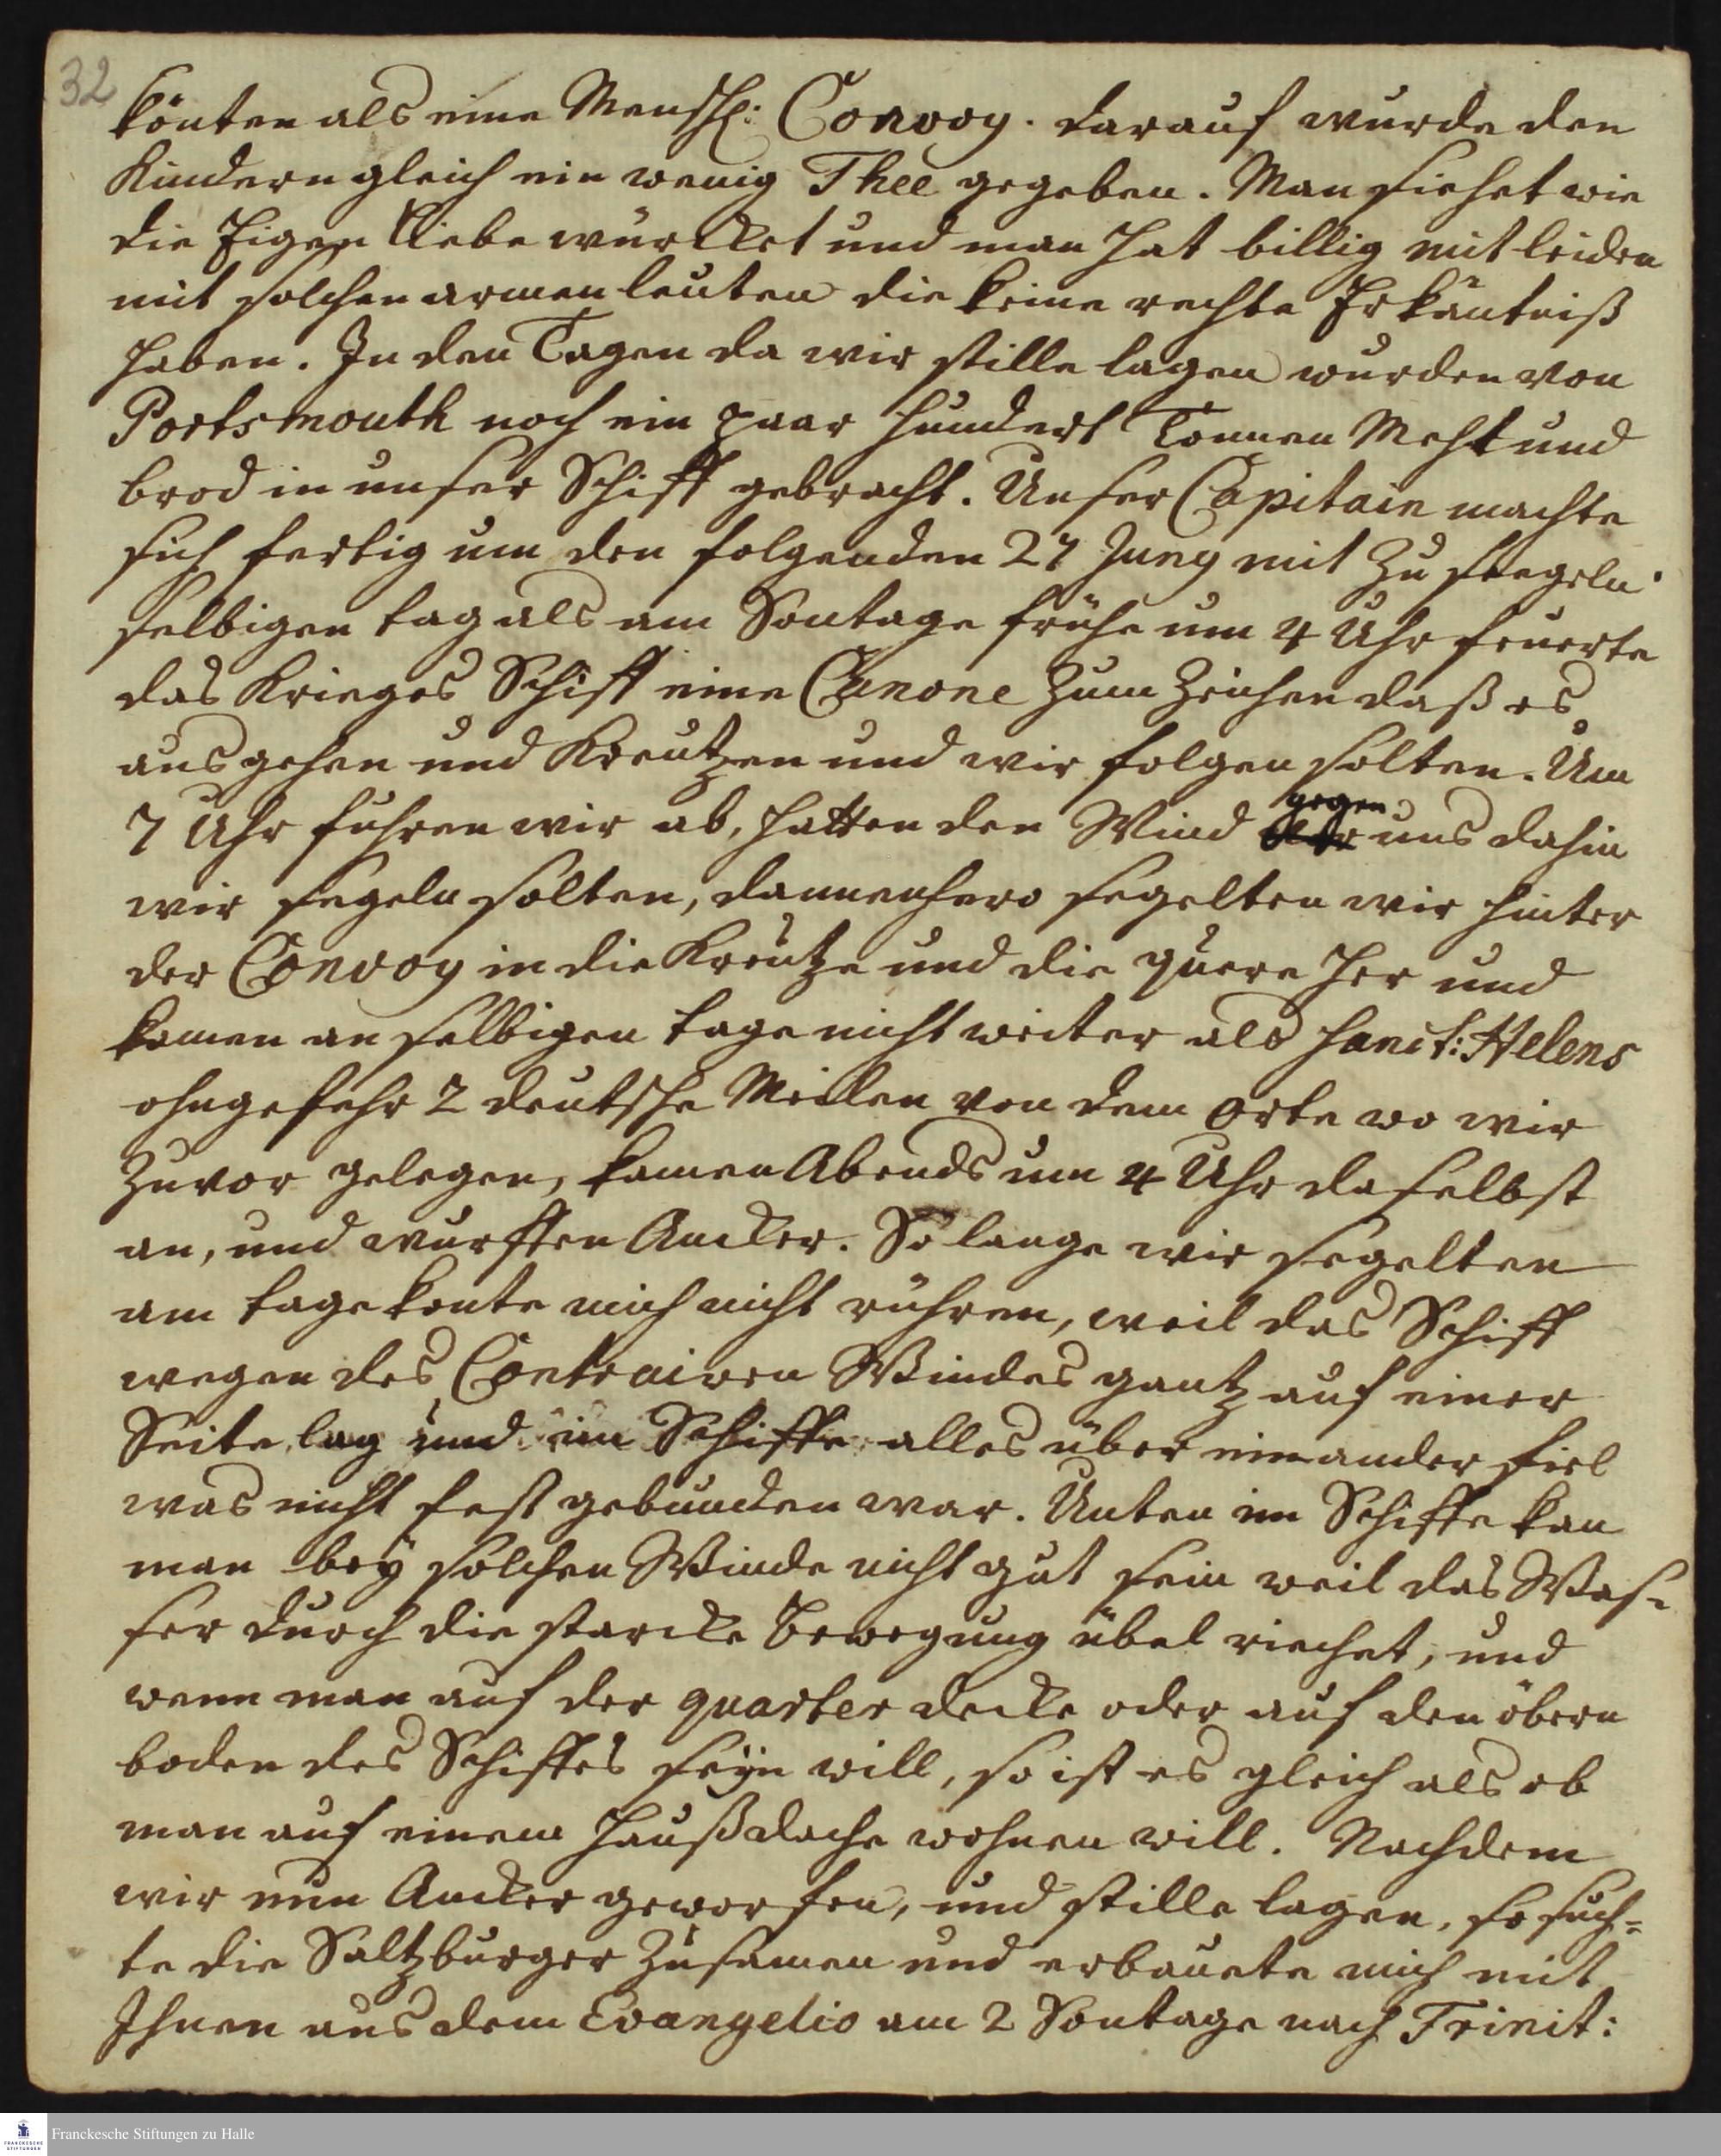 32
könten als eine Menschl: Convoy. darauf wurde den
Kindern gleich ein wenig Thee gegeben. Man siehet wie
die Eigen Liebe würcket und man hat billig mitleiden
mit solchen armen leuten die keine rechte Erkäntniß
haben. In den Tagen da wir stille lagen wurden von
Portsmouth noch ein paar hundert Tonnen Mehl und
brod in unser Schiff gebracht. Unser Capitain machte
sich fertig um den folgenden 27 Juny mit zu seegeln.
selbigen tag als am Sontage frühe um 4 Uhr feuerte
das Krieges Schiff eine Canone zum Zeichen daß es
ausgehen und Kreutzen und wir folgen solten. Um
7 Uhr fuhren wir ab, hatten den Wind gegen uns dahin
wir segeln solten, dannenhero segelten wir hinter
der Convoy in die Kreutze und die quere her und
kamen an selbigen tage nicht weiter als Sanct: Helens
ohngefehr 2 deutsche Meilen von dem Orte wo wir
zuvor gelegen, kamen Abends um 4 Uhr daselbst
an, und wurffen Ancker. So lange wir segelten
am tage konte mich nicht rühren, weil das Schiff
wegen des Contrairen Windes gantz auf einer
Seite lag und im Schiffe alles über einander fiel
was nicht fest gebunden war. Unten im Schiffe kan
man bey solchen Winde nicht gut sein weil das Was-
ser durch die starcke Bewegung übel riechet, und
wenn man auf der quarter decke oder auf den öbern
boden des Schiffes seyn will, so ist es gleich als ob
man auf einem Haußdache wohnen will. Nachdem
wir nun Ancker geworfen, und stille lagen, so such-
te die Saltzburger zusamen und erbauete mich mit
Ihnen aus dem Evangelio am 2 Sontage nach Trinit:
FRANCKESCHE STIFTUNGEN
Franckesche Stiftungen zu Halle